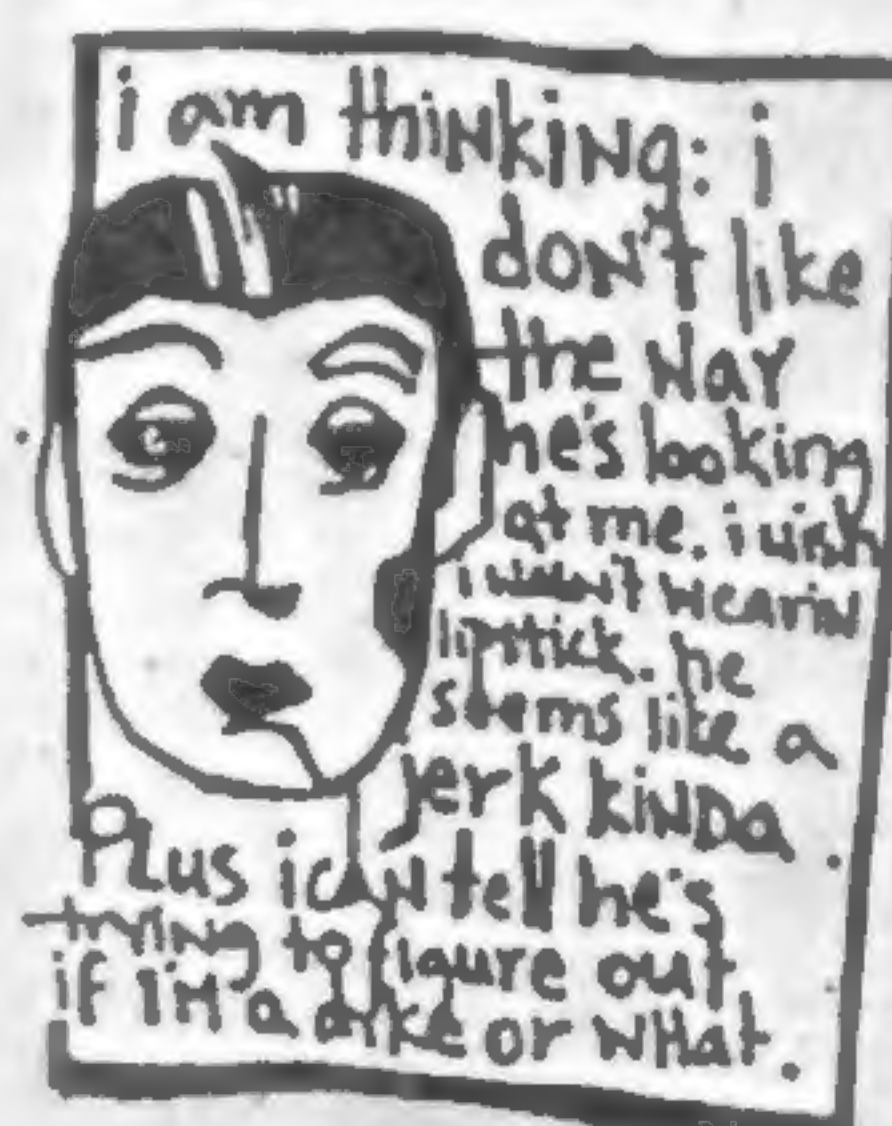 i am thinking: i
don't like
the way
he's looking
at me. i wish
i wasn't wearin
lipstick. he
seems like a
jerk kinda.
Plus i can tell he's
trying to figure out
if i'm a dyke or what.